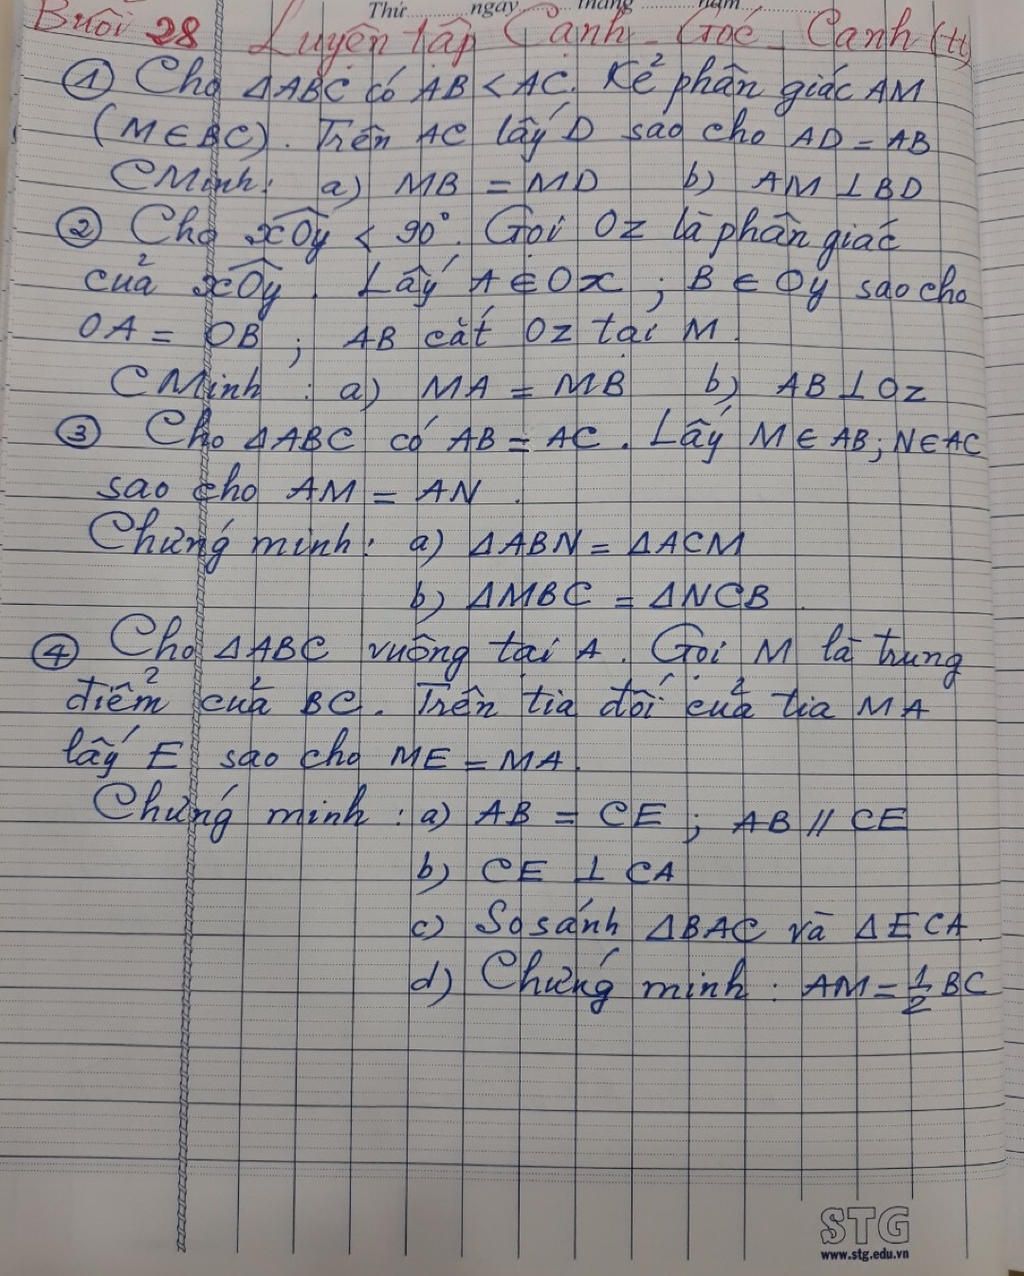 Thứ ngày tháng năm
Buổi 28 Luyện tập Cạnh - Góc - Cạnh (tt)
① Cho ΔABC có AB < AC. Kẻ phân giác AM
(M ∈ BC). Trên AC lấy D sao cho AD = AB
CMinh: a) MB = MD b) AM ⊥ BD
② Cho xOy < 90°. Gọi Oz là phân giác
của xOy. Lấy A ∈ Ox ; B ∈ Oy sao cho
OA = OB ; AB cắt Oz tại M.
CMinh : a) MA = MB b) AB ⊥ Oz
③ Cho ΔABC có AB = AC. Lấy M ∈ AB; N ∈ AC
sao cho AM = AN.
Chứng minh: a) ΔABN = ΔACM
b) ΔMBC = ΔNCB.
④ Cho ΔABC vuông tại A. Gọi M là trung
điểm của BC. Trên tia đối của tia MA
lấy E sao cho ME = MA.
Chứng minh : a) AB = CE ; AB // CE
b) CE ⊥ CA
c) So sánh ΔBAC và ΔECA.
d) Chứng minh : AM = 1/2 BC
STG
www.stg.edu.vn